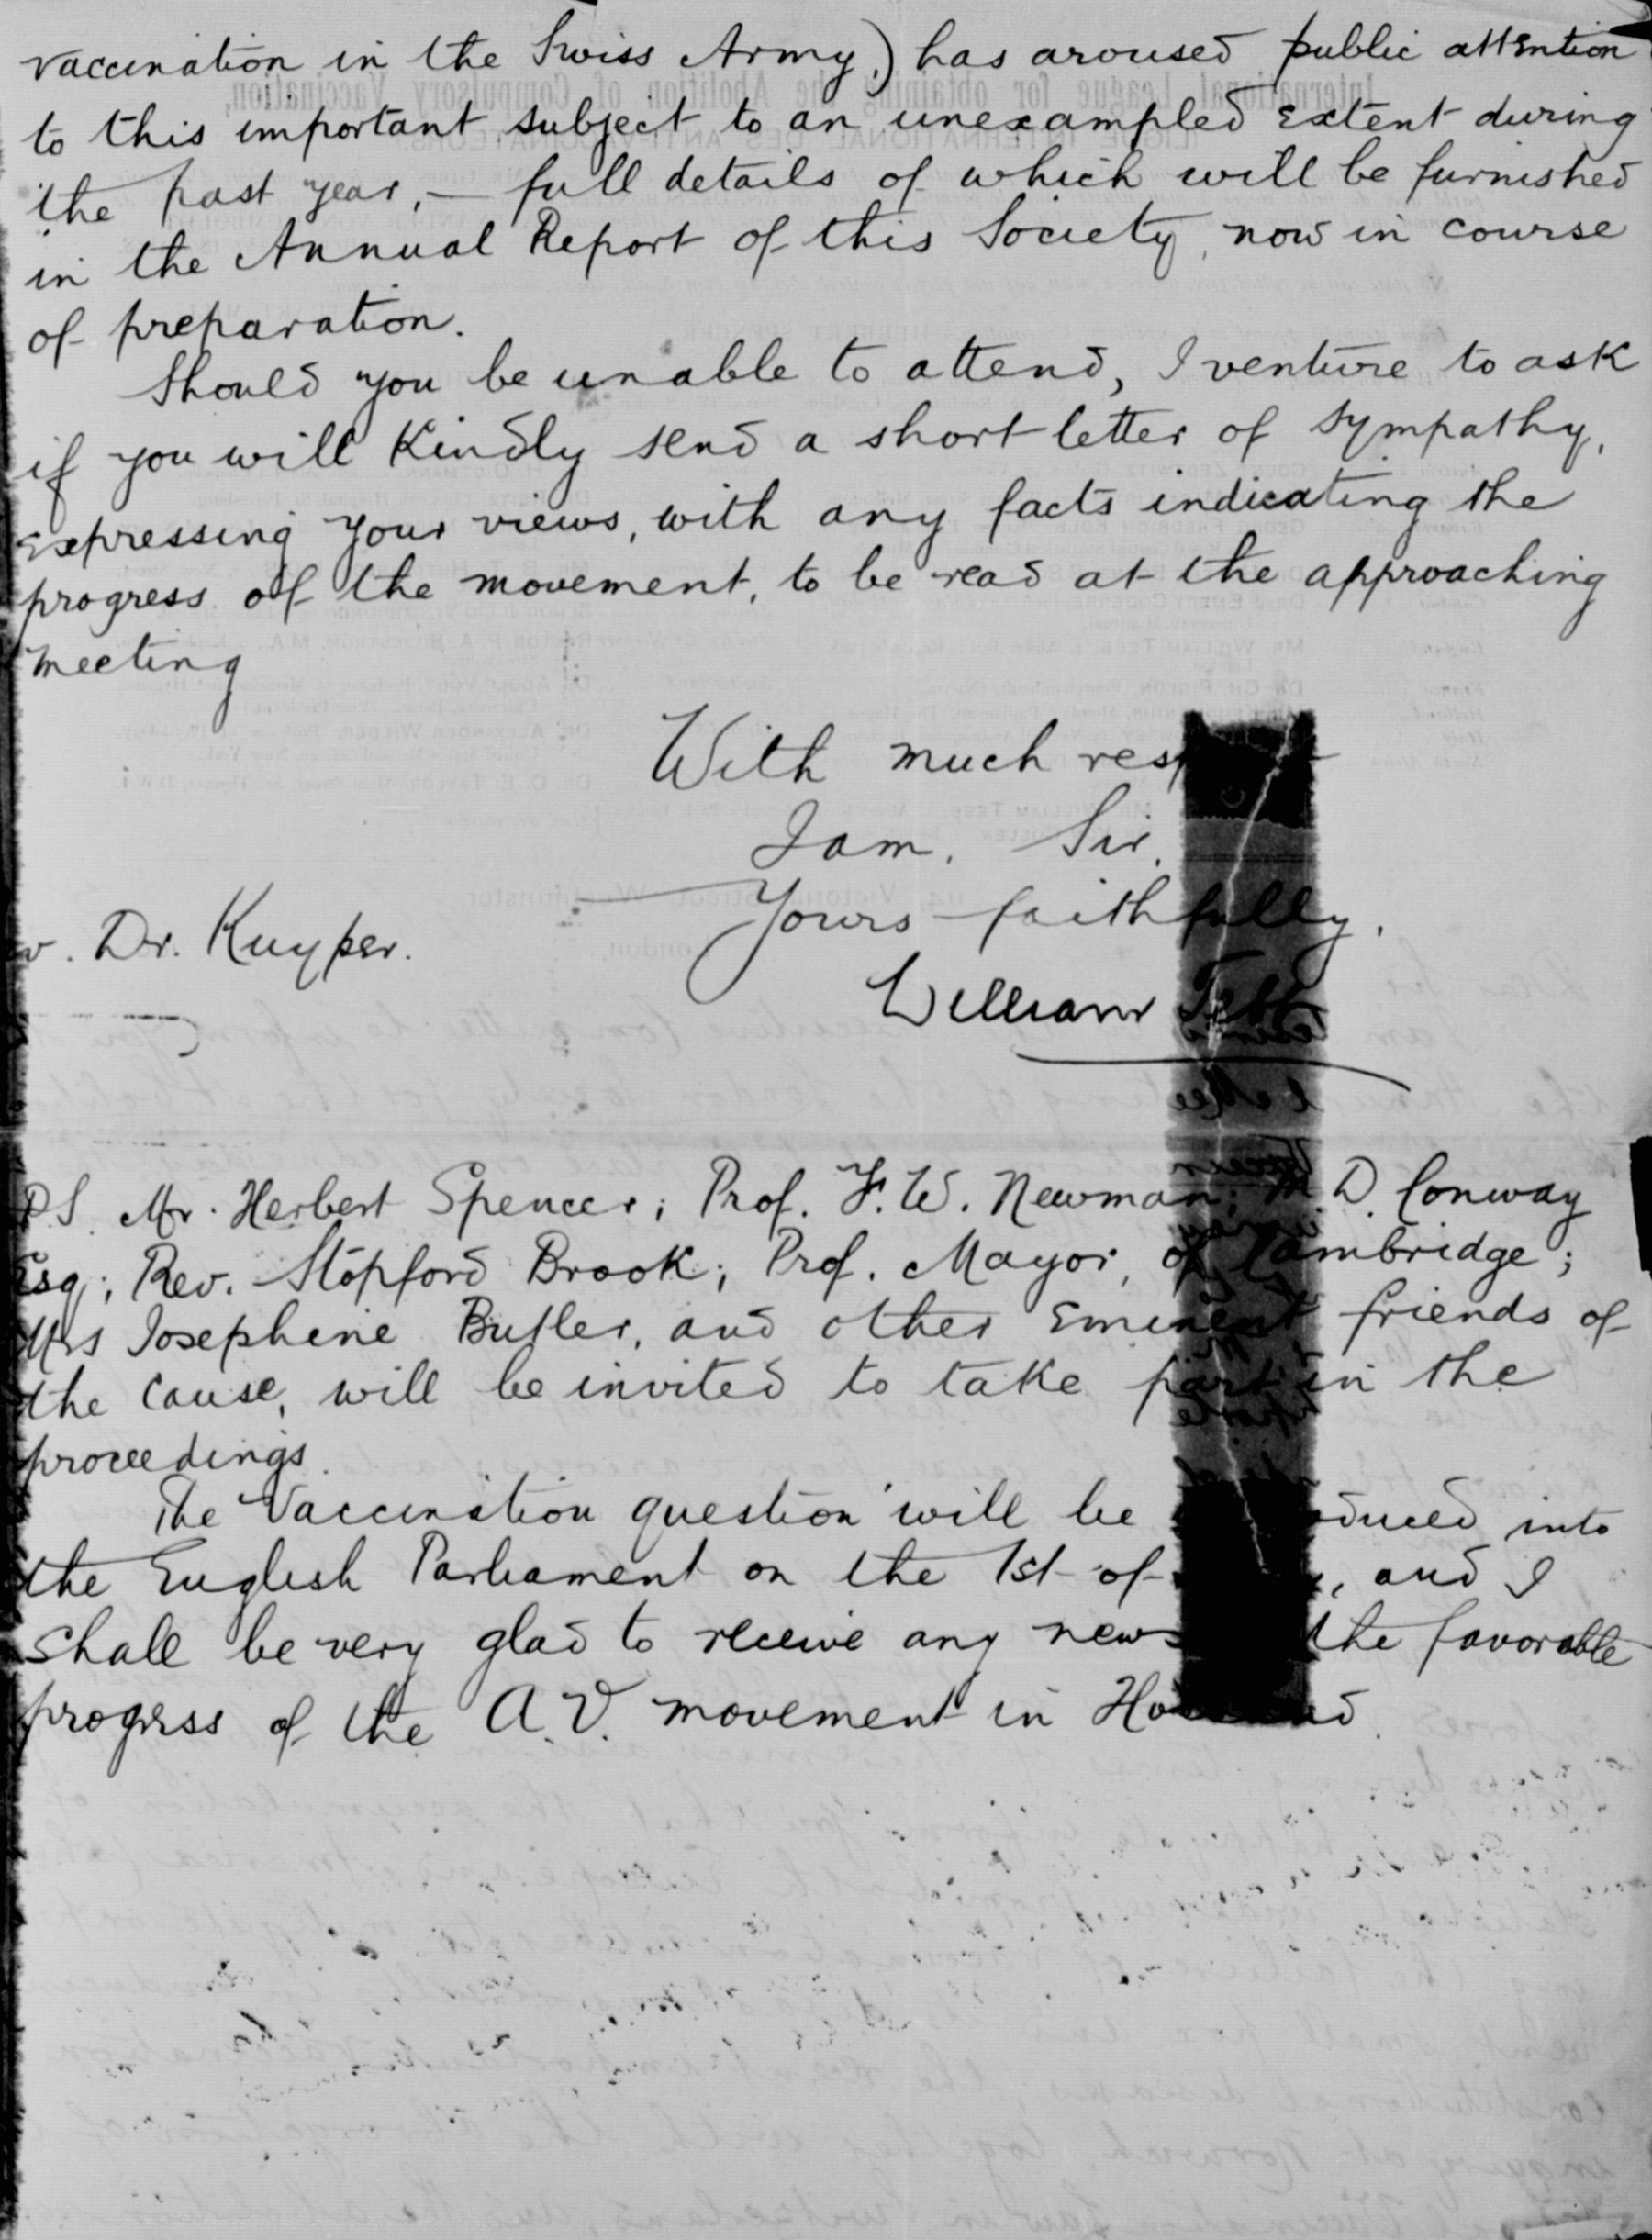 vaccination in the Swiss Army,) has aroused public attention
to this important subject to an unexampled extent during
the past year, — full details of which will be furnished
in the Annual Report of this Society, now in course
of preparation.
Should you be unable to attend, I venture to ask
if you will Kindly send a short letter of sympathy,
expressing your views, with any facts indicating the
progress of the movement, to be read at the approaching
meeting
With much resp
I am, Sir,
Yours faithfully,
William Tebb
v. Dr. Kuyper.
P.S. Mr. Herbert Spencer; Prof. F. W. Newman; M. D. Conway
Esq; Rev. Stopford Brook; Prof. Mayor, of Cambridge;
Mrs Josephine Butler, and other eminent friends of
the cause, will be invited to take part in the
proceedings.
The Vaccination question will be duced into
the English Parliament on the 1st of , and I
shall be very glad to receive any news the favorable
progress of the A.V. movement in Ho nd.